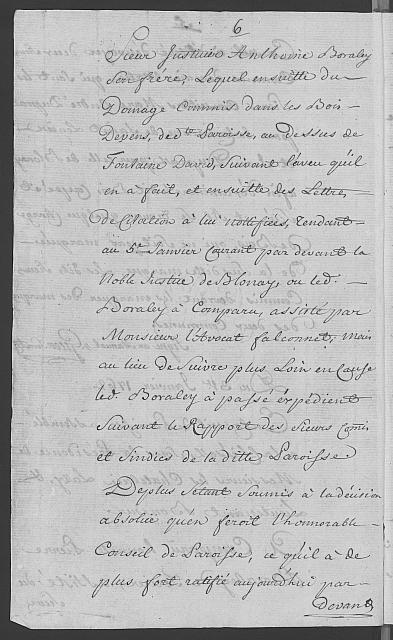 6
Sieur Justicier Anthoine Boraley
Son frère, Lequel ensuitte du
Domage Commis dans les Bois
Devens, de d.te Paroisse, au dessus de
Fontaine David, Suivant l'aveu qu'il
en a fait, et ensuitte des Lettres
de Citation à lui nottifiées, tendant
au 5e Janvier Courant par devant la
Noble Justice de Blonay, ou led.
Boraley à Comparu, assisté par
Monsieur l'Avocat falconnet, mais
au lieu de Suivre plus Loin en Cause
led. Boraley à passé expédient
Suivant le Rapport des Sieurs Comis
et Sindics de la ditte Paroisse
Deplus S'étant Soumis à la décision
absolüe qu'en feroit l'honnorable
Conseil de Paroisse, ce qu'il a de
plus fort ratifié aujourd'hui par
Devant